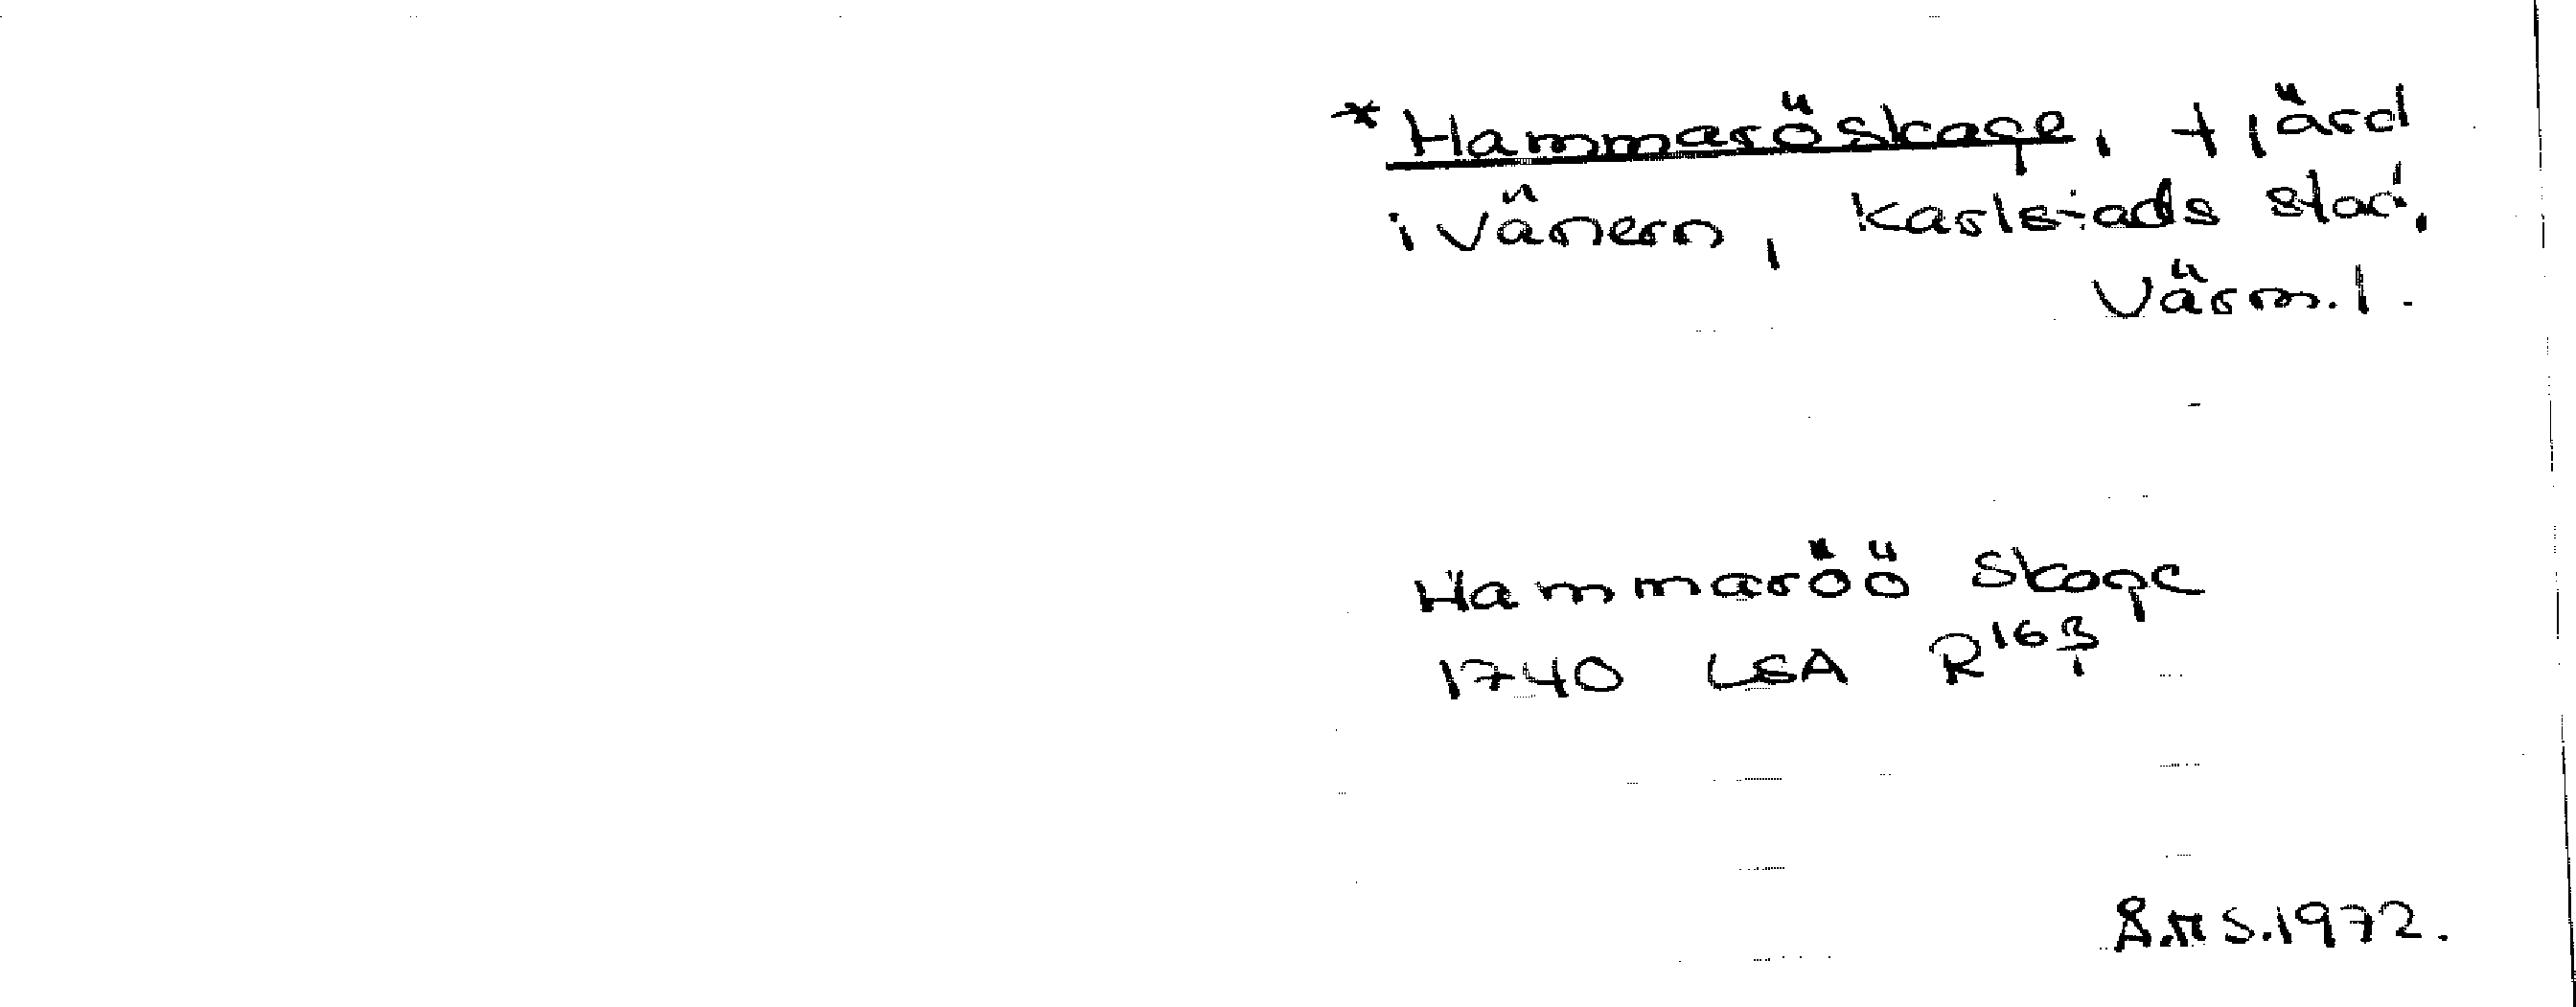 *Hammaröskage, fjärd
i Vänern, Karlstads stad,
Värm. l.
Hammaröö Skage
1740 LSA R
Å.H S. 1972.